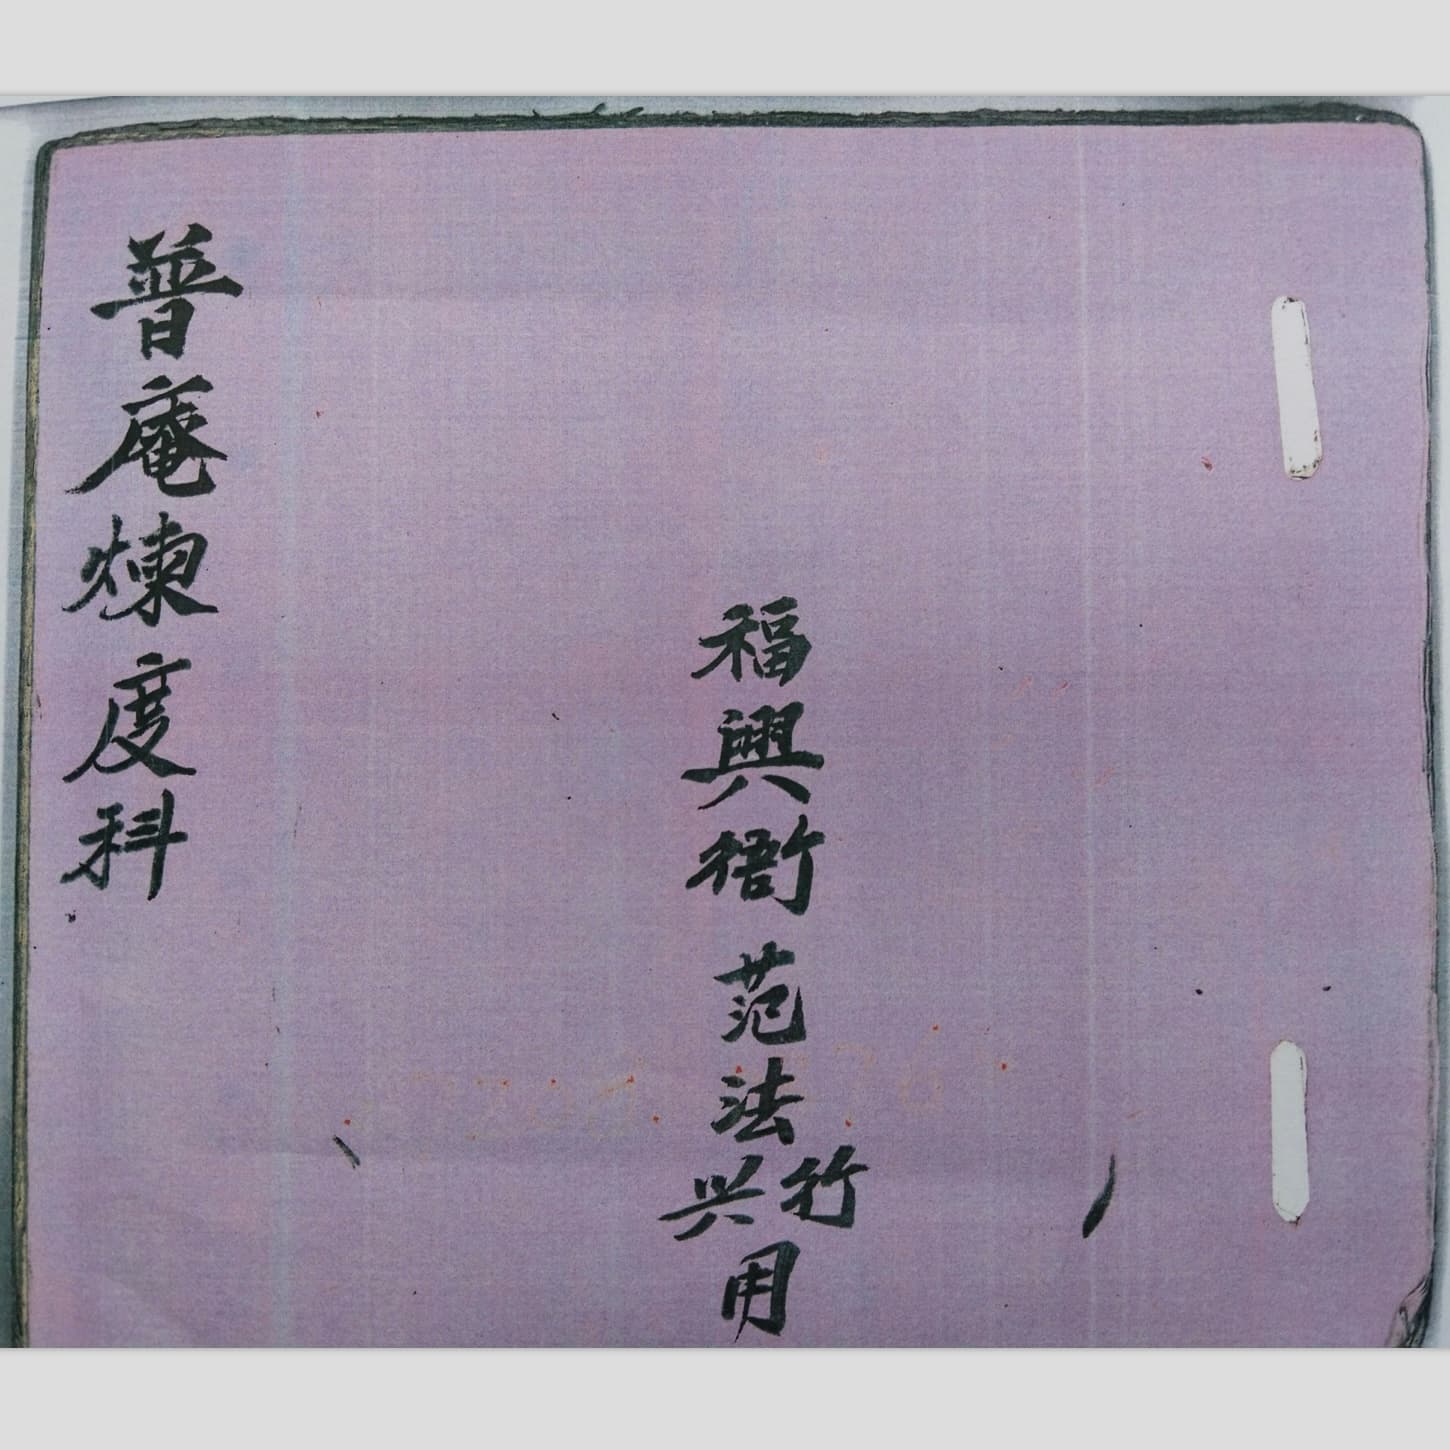 福興衙范法竹兴用
普庵煉度科